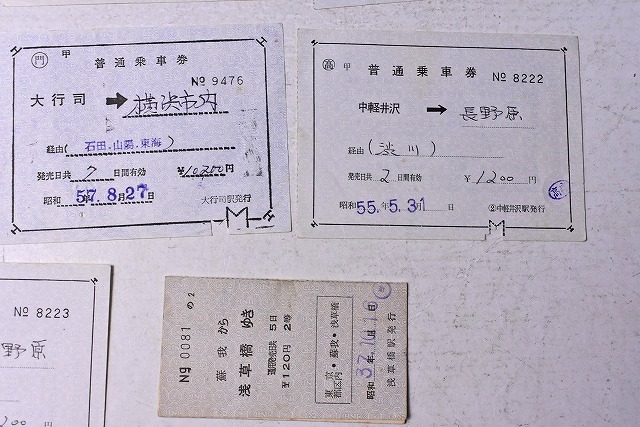 門 甲
普通乗車券
№ 9476
大行司 ➡ 横浜市内
経由(石田.山陽.東海)
発売日共 7 日間有効 ¥10200円
昭和 57.8月27日 大行司駅発行
高 甲
普通乗車券 № 8222
中軽井沢 ➡ 長野原
経由(渋川)
発売日共 2 日間有効 ¥1200円
昭和 55.年5.月31日 ②中軽井沢駅発行
№ 8223
野原
00円
Ng 0081 の2
蘇我から
浅草橋ゆき
通用発売日共 5日
¥120円 2等
東京都区内・蘇我・浅草橋
昭和37年
浅草橋駅発行